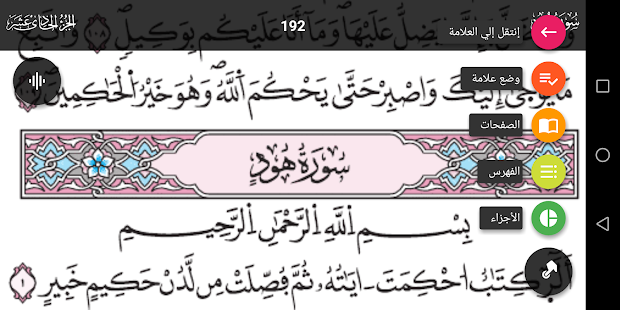 الجزء الحادي عشر
192
سورة
يَضِلُّ عَلَيْهَا وَمَا أَنَا عَلَيْكُم بِوَكِيلٍ ١٠٨
إنتقل إلي العلامة
وضع علامة
يُوحَىٰ إِلَيْكَ وَاصْبِرْ حَتَّىٰ يَحْكُمَ اللَّهُ وَهُوَ خَيْرُ الْحَاكِمِينَ
الصفحات
سُورَةُ هُودٍ
الفهرس
الأجزاء
بِسْمِ اللَّهِ الرَّحْمَٰنِ الرَّحِيمِ
الَر كِتَابٌ احْكِمَتَ ايَاتُهُ ثُمَّ فُصِّلَتْ مِن لَّدُنْ حَكِيمٍ خَبِيرٍ ١